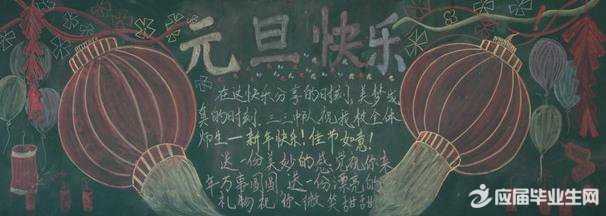 元旦快乐
在这快乐分享的时刻，美梦成
真的时刻，三三中队祝我校全体
师生一新年快乐！佳节如意！
送一份美妙的感觉祝你来
年万事圆圆 送一份漂亮的
礼物祝你微笑甜甜
应届毕业生网